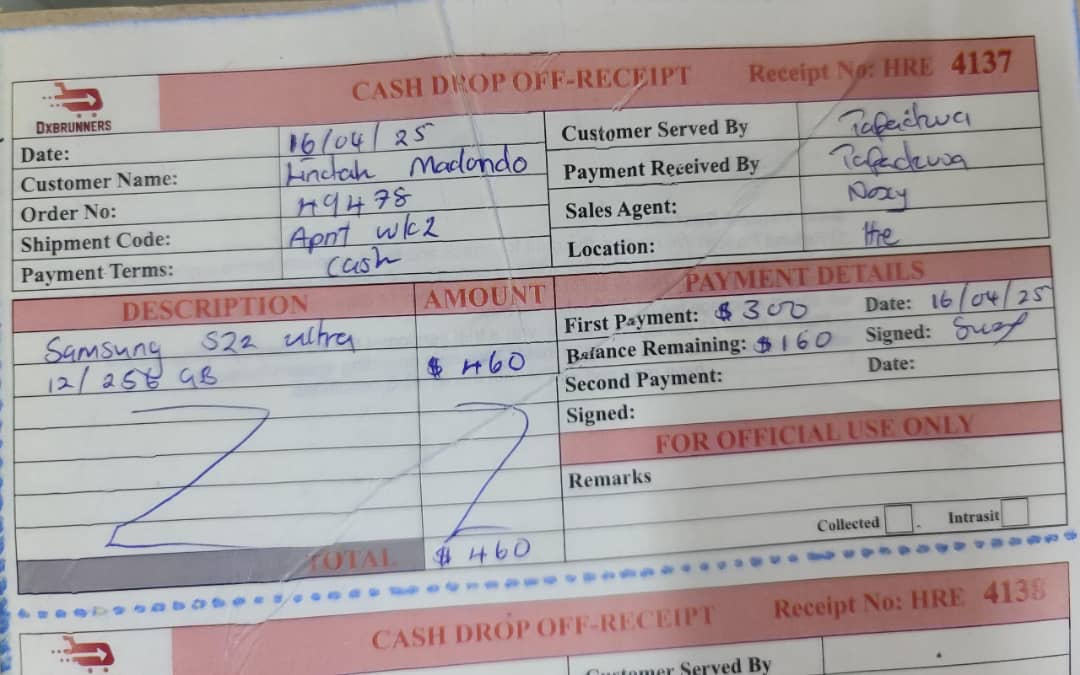 CASH DROP OFF-RECEIPT Receipt No: HRE 4137
DXBRUNNERS
Date: 16/04/25
Customer Name: Lindah Madondo
Order No: 49478
Shipment Code: Aprt wk2
Payment Terms: cash
Customer Served By Tafadzwa
Payment Received By Tafadzwa
Sales Agent: Noxy
Location: Hre
DESCRIPTION AMOUNT
Samsung S22 ultra
12/256 GB $ 460
TOTAL $ 460
PAYMENT DETAILS
First Payment: $ 300 Date: 16/04/25
Balance Remaining: $ 160 Signed:
Second Payment: Date:
Signed:
FOR OFFICIAL USE ONLY
Remarks
Collected Intrasit
CASH DROP OFF-RECEIPT Receipt No: HRE 4138
Customer Served By